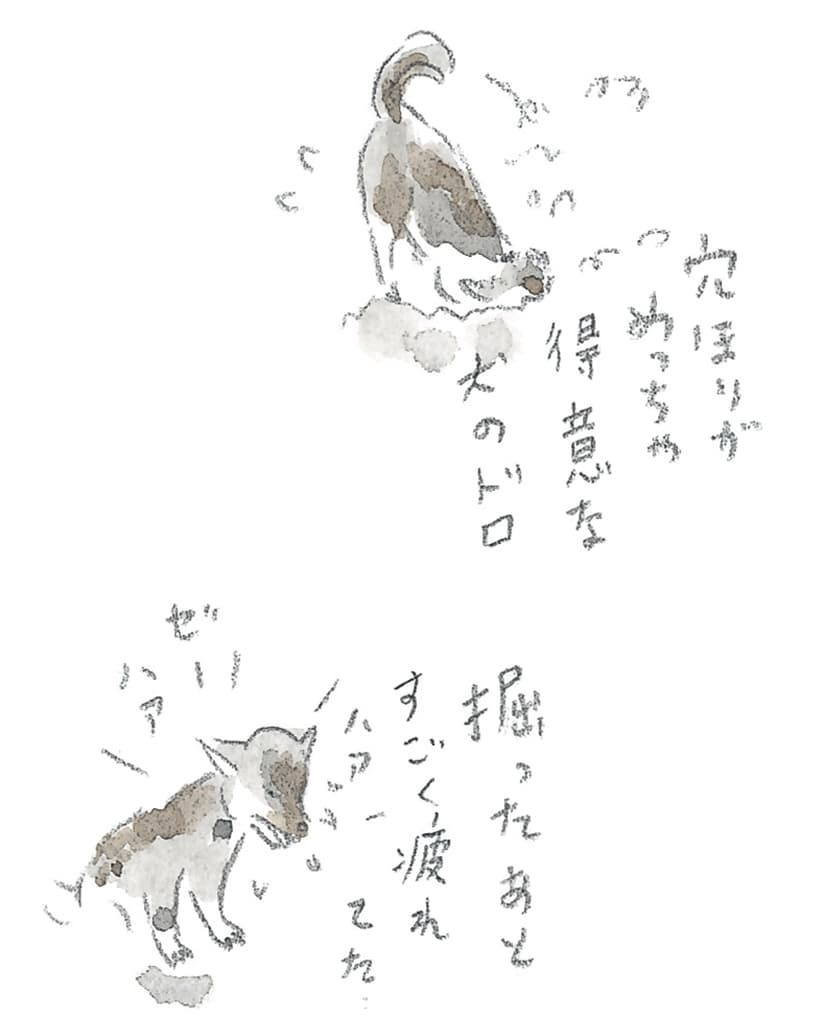 穴ほりが
めっちゃ
得意な
犬のドロ
掘ったあと
すごく疲れ
てた‥
ハアー
ゼー
ハア